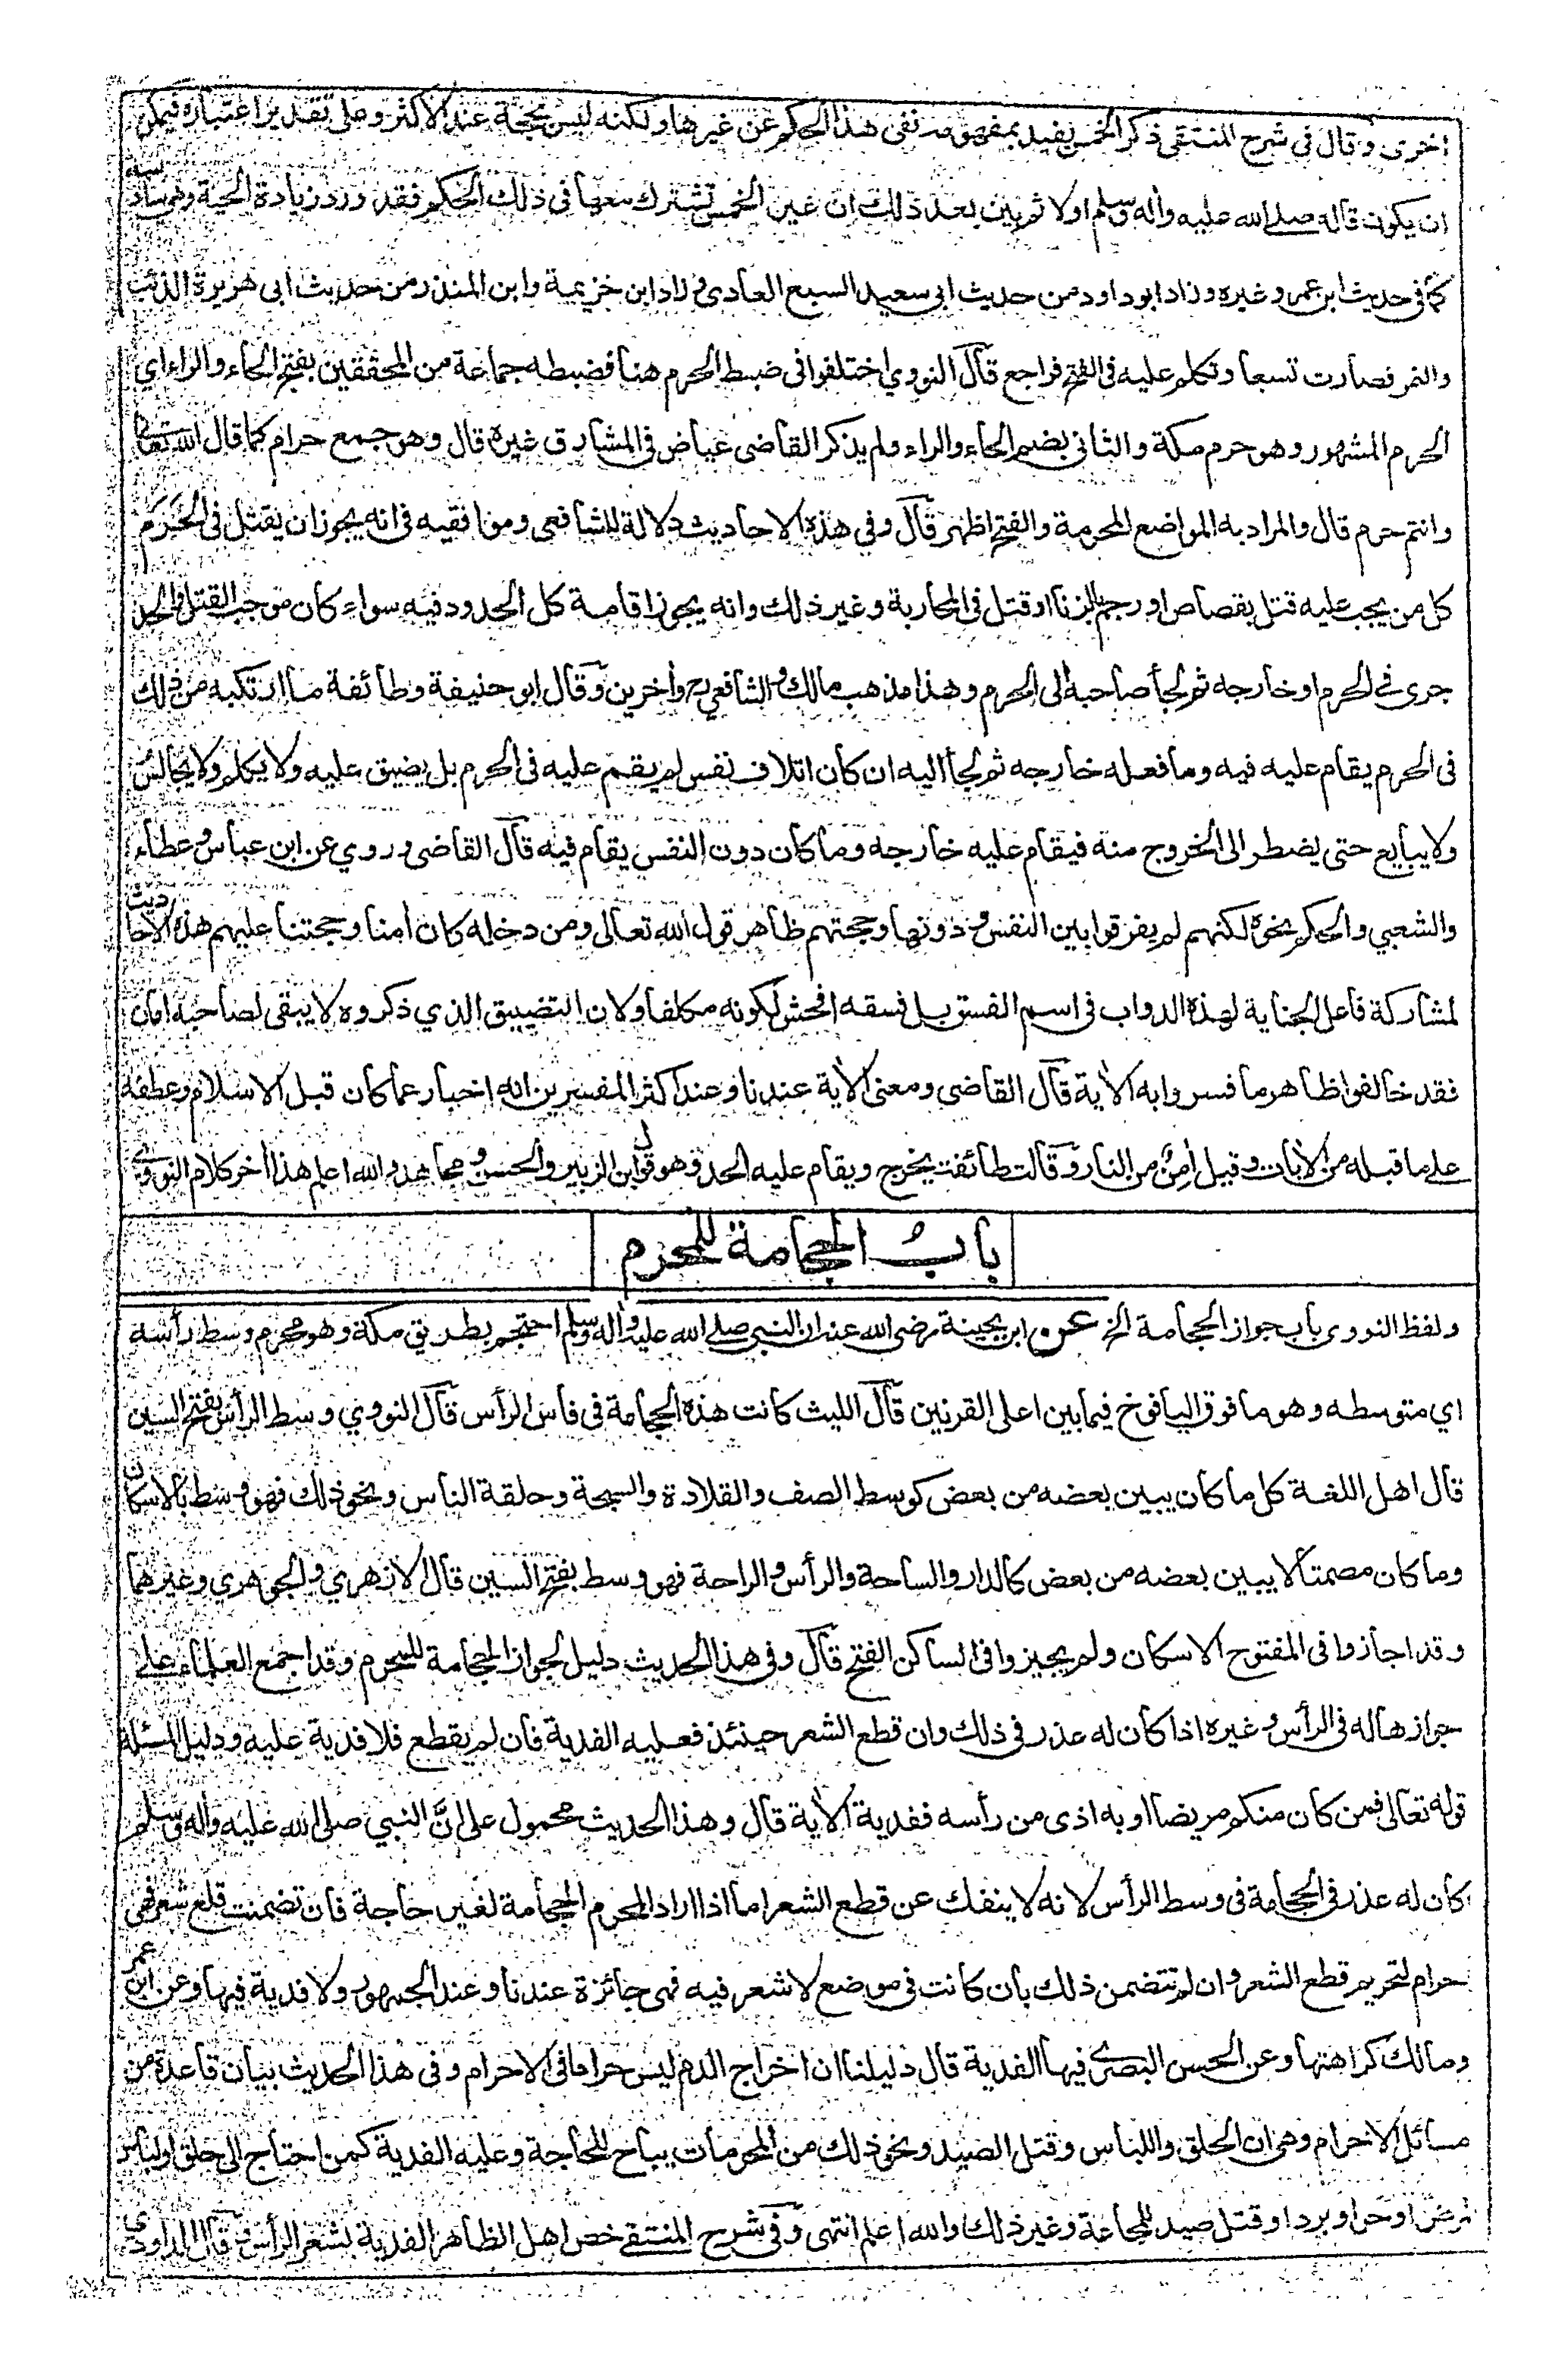 اخرى وقال في شرح المنتقى ذكر الخمس يفيد بمفهومه نفى هذا الحكم عن غيرها ولكنه ليس بحجة عند الأكثر وعلى تقدير اعتباره فيمكن
ان يكون قاله صلى الله عليه وآله وسلم اولا ثم بين بعد ذلك ان غير الخمس تشترك معها في ذلك الحكم فقد ورد زيادة الحية وهي سادسة
كما في حديث ابن عمر وغيره وزاد ابو داود من حديث ابي سعيد السبع العادي وزاد ابن خزيمة وابن المنذر من حديث ابى هريرة الذئب
والنمر فصارت تسعا وتكلم عليه في الفتح فراجع قال النووي اختلفوا في ضبط الحرم هنا فضبطه جماعة من المحققين بفتح الحاء والراء اي
الحرم المشهور وهو حرم مكة والثاني بضم الحاء والراء ولم يذكر القاضي عياض في المشارق غيره قال وهو جمع حرام كما قال الله تعالى
وانتم حرم قال والمراد به المواضع المحرمة والفتح اظهر قال وفي هذه الاحاديث دلالة للشافعي وموافقيه في انه يجوز ان يقتل في الحرم
كل من يجب عليه قتل بقصاص او رجم بالزنا او قتل في المحاربة وغير ذلك وانه يجوز اقامة كل الحدود فيه سواء كان موجب القتل والحد
جرى في الحرم او خارجه ثم لجأ صاحبه الى الحرم وهذا مذهب مالك والشافعي رح وآخرين وقال ابو حنيفة وطائفة ما ارتكبه من ذلك
في الحرم يقام عليه فيه وما فعله خارجه ثم لجأ اليه ان كان اتلاف نفس لم يقم عليه في الحرم بل يضيق عليه ولا يكلم ولا يجالس
ولا يبايع حتى يضطر الى الخروج منه فيقام عليه خارجه وما كان دون النفس يقام فيه قال القاضي وروي عن ابن عباس وعطاء
والشعبي والحكم نحوه لكنهم لم يفرقوا بين النفس ودونها وحجتهم ظاهر قول الله تعالى ومن دخله كان آمنا وحجتنا عليهم هذه الاحاديث
لمشاركة فاعل الجناية لهذه الدواب في اسم الفسق بل فسقه افحش لكونه مكلفا ولان التضييق الذي ذكروه لا يبقى لصاحبه امان
فقد خالفوا ظاهر ما فسروا به الآية قال القاضي ومعنى الآية عندنا وعند اكثر المفسرين انه اخبار عما كان قبل الاسلام وعطفه
على ما قبله من الآيات وقيل آمن من النار وقالت طائفة يخرج ويقام عليه الحد وهو قول ابن الزبير والحسن ومجاهد والله اعلم هذا آخر كلام النووي
باب الحجامة للمحرم
ولفظ النووي باب جواز الحجامة الخ عن ابن بحينة رضي الله عنه ان النبي صلى الله عليه وآله وسلم احتجم بطريق مكة وهو محرم وسط رأسه
اي متوسطه وهو ما فوق اليافوخ فيما بين اعلى القرنين قال الليث كانت هذه الحجامة في فأس الرأس قال النووي وسط الرأس بفتح السين
قال اهل اللغة كل ما كان يبين بعضه من بعض كوسط الصف والقلادة والسبحة وحلقة الناس ونحو ذلك فهو وسط بالاسكان
وما كان مصمتا لا يبين بعضه من بعض كالدار والساحة والرأس والراحة فهو وسط بفتح السين قال الازهري والجوهري وغيرهما
وقد اجازوا في المفتوح الاسكان ولم يجيزوا في الساكن الفتح قال وفي هذا الحديث دليل لجواز الحجامة للمحرم وقد اجمع العلماء على
جوازها له في الرأس وغيره اذا كان له عذر في ذلك وان قطع الشعر حينئذ فعليه الفدية فان لم يقطع فلا فدية عليه ودليل المسئلة
قوله تعالى فمن كان منكم مريضا او به اذى من رأسه ففدية الآية قال وهذا الحديث محمول على انّ النبي صلى الله عليه وآله وسلم
كان له عذر في الحجامة في وسط الرأس لانه لا ينفك عن قطع الشعر اما اذا اراد المحرم الحجامة لغير حاجة فان تضمنت قلع شعر فهي
حرام لتحريم قطع الشعر وان لم تتضمن ذلك بان كانت في موضع لا شعر فيه فهي جائزة عندنا وعند الجمهور ولا فدية فيها وعن ابن عمر
ومالك كراهتها وعن الحسن البصري فيها الفدية قال دليلنا ان اخراج الدم ليس حراما في الاحرام وفي هذا الحديث بيان قاعدة من
مسائل الاحرام وهي ان الحلق واللباس وقتل الصيد ونحو ذلك من المحرمات يباح للحاجة وعليه الفدية كمن احتاج الى حلق او لباس
لمرض او حر او برد او قتل صيد للمجاعة وغير ذلك والله اعلم انتهى وفي شرح المنتقى خص اهل الظاهر الفدية بشعر الرأس وقال الداودي